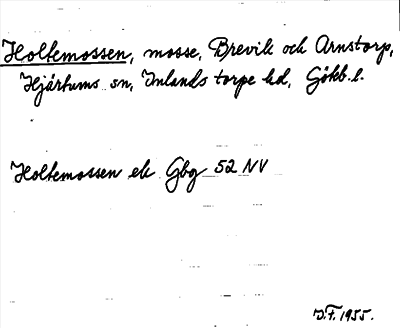 Holtemossen, mosse, Brevik och Arnstorp,
Hjärtums sn, Inlands torpe hd, Gökb. l.
Holtemossen ek Gbg 52 NV
D.F. 1955.